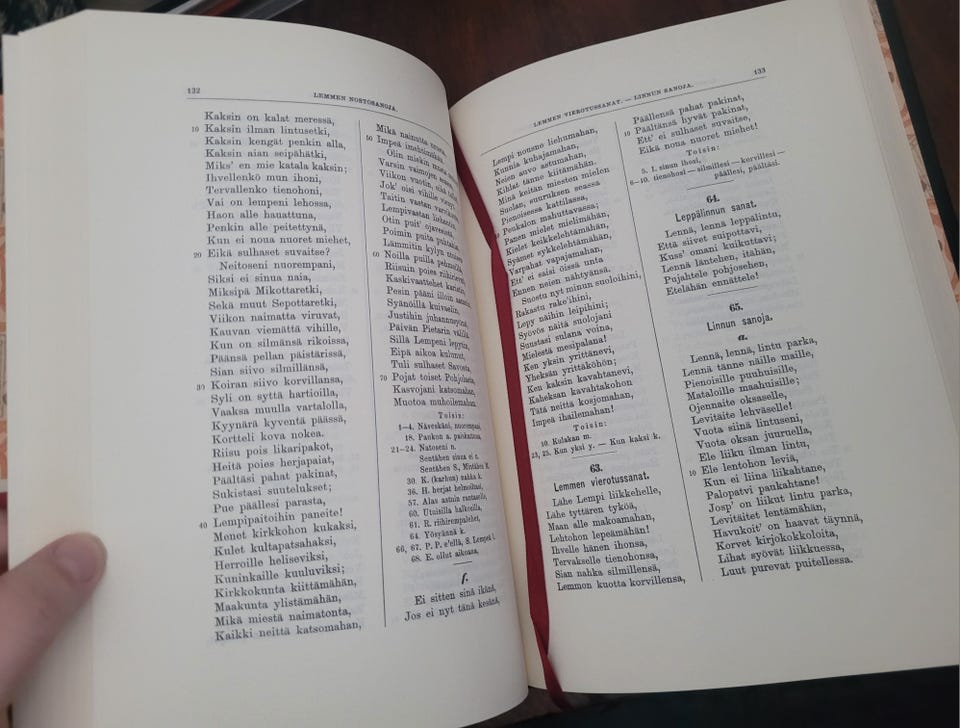 132
LEMMEN NOSTOSANOJA.
Kaksin on kalat meressä,
10 Kaksin ilman lintusetki,
Kaksin kengät penkin alla,
Kaksin aian seipähätki,
Miks' en mie katala kaksin;
Ihvellenkö mun ihoni,
Tervallenko tienohoni,
Vai on lempeni lehossa,
Haon alle hauattuna,
Penkin alle peitettynä,
Kun ei noua nuoret miehet,
20 Eikä sulhaset suvaitse?
Neitoseni nuorempani,
Siksi ei sinua naia,
Miksipä Mikottaretki,
Sekä muut Sepottaretki,
Viikon naimatta viruvat,
Kauvan viemättä vihille,
Kun on silmänsä rikoissa,
Päänsä pellan päistärissä,
Sian siivo silmillänsä,
30 Koiran siivo korvillansa,
Syli on syttä hartioilla,
Vaaksa muulla vartalolla,
Kyynärä kyventä päässä,
Kortteli kova nokea.
Riisu pois likaripakot,
Heitä poies herjapaiat,
Päältäsi pahat pakinat,
Sukistasi suutelukset;
Pue päällesi parasta,
40 Lempipaitoihin paneite!
Menet kirkkohon kukaksi,
Kulet kultapatsahaksi,
Herroille heliseviksi,
Kuninkaille kuuluviksi;
Kirkkokunta kiittämähän,
Maakunta ylistämähän,
Mikä miestä naimatonta,
Kaikki neittä katsomahan,
Mikä nainutta
50 Impeä imehtimähän.
Olin miekin
Varsin vaimojen
Viikon vuotin,
Jok' oisi vihille
Taitin vastan
Lempivastan
Otin puit' ojavesistä,
Poimin puita
Lämmitin kylyn
60 Noilla puilla
Riisuin poies
Kaskivaattehet
Pesin pääni illoin
Syänöillä kuivaelin,
Justihin juhannuspäinä,
Päivän Pietarin välillä,
Sillä Lempeni
Eipä aikoa kulunut,
Tuli sulhaset Savosta,
70 Pojat toiset Pohjolasta,
Kasvojani katsomahan,
Muotoa muhoilemahan.
Toisin:
1—4. Näveskäni, nuorempani,
18. Pankon a. paikattuna,
21—24. Natoseni n.
Sentähen sinua ei n.
Sentähen S, Mintähen K.
30. K. (karhun) nahka k.
36. H. herjat helmoiltasi,
57. Alas astuin rantaselle,
60. Utuisilla halkoilla,
61. R. riihirempalehet,
64. Yösyännä k.
66, 67. P. P. e'ellä, S. Lempeni l.
68. E. ollut aikoana,
f.
Ei sitten sinä ikänä,
Jos ei nyt tänä kesänä,
LEMMEN VIEROTUSSANAT. — LINNUN SANOJA.
133
Lempi nousne liehumahan,
Kunnia kuhajamahan,
Neien auvo astumahan,
Kihlat tänne kiitämähän.
Minä keitän miesten mielen
Suolan, suuruksen seassa
Pienoisessa kattilassa,
Peukalon mahuttavassa;
Panen mielet mielimähän,
Kielet keikkelehtämähän,
Syämet sykkelehtämähän,
Varpahat vapajamahan,
Ett' ei saisi öissä unta
Ennen neien nähtyänsä.
Suostu nyt minun suoloihini,
Rakastu rake'ihini,
Lepy näihin leipihini;
Syövös näitä suolojani
Suustasi sulana voina,
Mielestä mesipalana!
Ken yksin yrittänevi,
Yheksän yrittäköhön;
Ken kaksin kavahtanevi,
Kaheksan kavahtakohon
Tätä neittä kosjomahan,
Impeä ihailemahan!
Toisin:
10. Kulakan m.
23, 25. Kun yksi y. — Kun kaksi k.
63.
Lemmen vierotussanat.
Lähe Lempi liikkehelle,
Lähe tyttären tyköä,
Maan alle makoamahan,
Lehtohon lepeämähän!
Ihvelle hänen ihonsa,
Tervakselle tienohonsa,
Sian nahka silmillensä,
Lemmon kuotta korvillensa,
Päällensä pahat pakinat,
10 Päältänsä hyvät pakinat,
Ett' ei sulhaset suvaitse,
Eikä noua nuoret miehet!
Toisin:
5. I. sinun ihosi,
6—10. tienohosi — silmillesi — korvillesi —
päällesi, päältäsi.
64.
Leppälinnun sanat.
Lennä, lennä leppälintu,
Että siivet suipottavi,
Kuss' omani kuikuttavi;
Lennä läntehen, itähän,
Pujahtele pohjosehen,
Etelähän ennättele!
65.
Linnun sanoja.
a.
Lennä, lennä, lintu parka,
Lennä tänne näille maille,
Pienoisille puuhuisille,
Mataloille maahuisille;
Ojennaite oksaselle,
Levitäite lehväselle!
Vuota siinä lintuseni,
Vuota oksan juuruella,
Ele liiku ilman lintu,
10 Ele lentohon leviä,
Kun ei liina liikahtane,
Palopatvi paukahtane!
Josp' on liikut lintu parka,
Levitäitet lentämähän,
Havukoit' on haavat täynnä,
Korvet kirjokokkoloita,
Lihat syövät liikkuessa,
Luut purevat puitellessa.